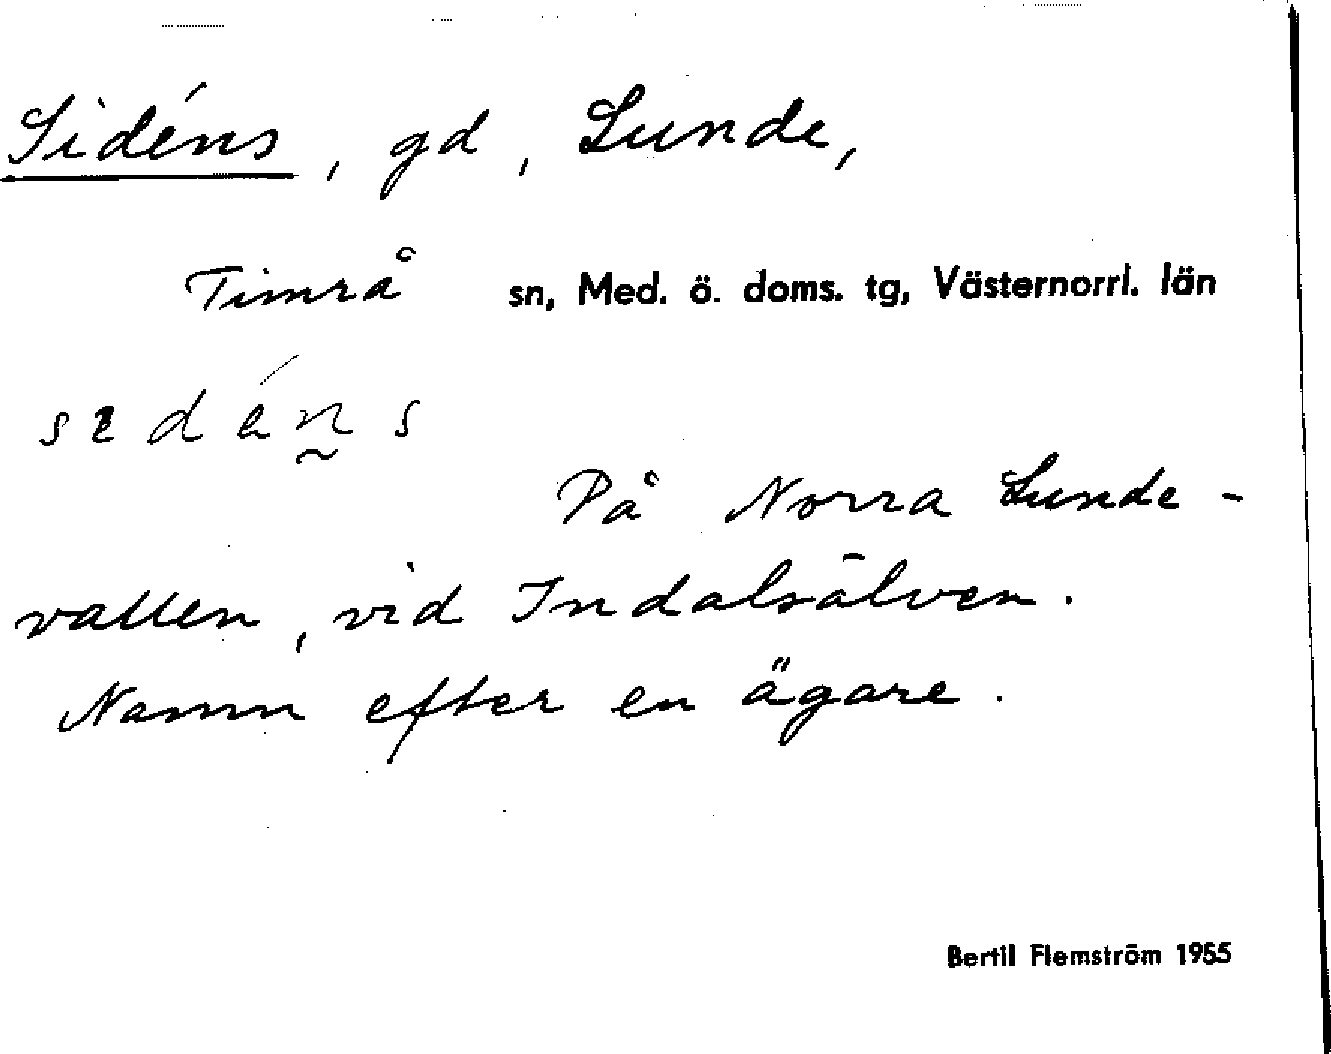 Sidéns, gd, Lunde,
Timrå sn, Med. ö. doms. tg, Västernorrl. län
sɩdén̰s
På Norra Lunde-
vallen, vid Indalsälven.
Namn efter en ägare.
Bertil Flemström 1955